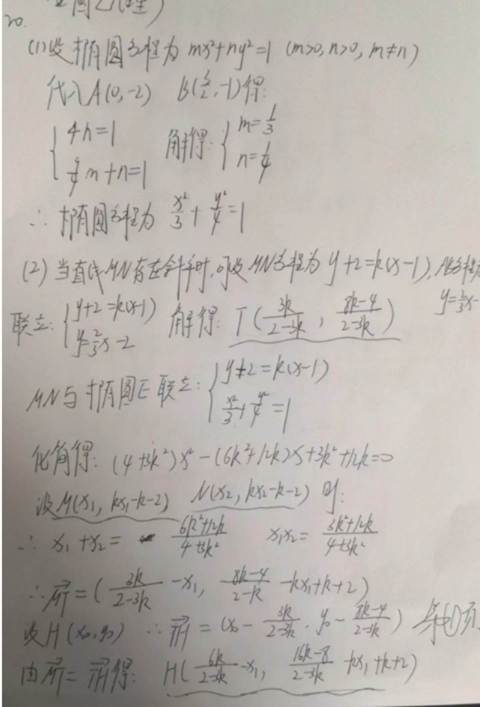 20.
(1)设椭圆方程为 mx²+ny²=1 (m>0,n>0,m≠n)
代入A(0,-2) B(3/2,-1)得:
{4n=1 9/4m+n=1 解得:{m=1/3 n=1/4
∴椭圆方程为 x²/3+y²/4=1
(2)当直线MN存在斜率时,可设MN方程为y+2=k(x-1),
联立:{y+2=k(x-1) y=2/3x-2 解得:T(3k/(2-3k), (8k-4)/(2-3k)) y=2/3x-
MN与椭圆E联立:{y+2=k(x-1) x²/3+y²/4=1
化简得:(4+3k²)x²-(6k²+12k)x+3k²+12k=0
设M(x₁,kx₁-k-2) N(x₂,kx₂-k-2) 则:
∴x₁+x₂= (6k²+12k)/(4+3k²) x₁x₂=(3k²+12k)/(4+3k²)
∴MT=(3k/(2-3k)-x₁, (8k-4)/(2-k)-kx₁+k+2)
设H(x₀,y₀) ∴TH=(x₀-3k/(2-3k), y₀-(8k-4)/(2-3k))
由MT=TH得: H(6k/(2-3k)-x₁, (16k-8)/(2-3k)-kx₁+k+2)